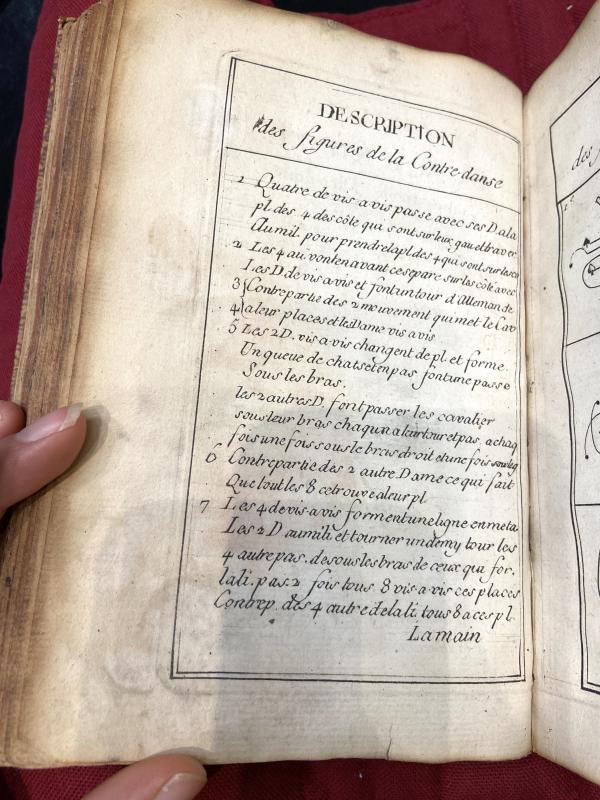 DESCRIPTION
des figures de la Contre-danse
1 Quatre de vis-a-vis passe avec ses D. a la
pl. des 4 des côte qui sont sur leux gau et traver
Au mil. pour prendre la pl. des 4 qui sont sur les
2 Les 4 au. vont en avant ce separe sur les côté avec
Les D. de vis a vis et font un tour d'Allemande
3 Contrepartie des 2 mouvement qui met le Cav
4 a leur places et les Dame vis a vis
5 Les 2 D. vis-a-vis changent de pl. et forme
Un queue de chat set en pas font une passe
Sous les bras.
les 2 autres D. font passer les cavalier
sous leur bras chaqun a leur tour et pas. a chaq
fois une fois sous le bras droit et une fois sous
6 Contrepartie des 2 autre. Dame ce qui fait
Que tout les 8 cetrouve a leur pl
7 Les 4 de vis-a-vis forment une ligne en meta
Les 2 D au mili et tourner un demy tour les
4 autre pas. de sous les bras de ceux qui for.
la li. pas. 2 fois tous 8 vis-a-vis ces places
Contrep. des 4 autre de la li. tous 8 a ces pl.
La main
des
1